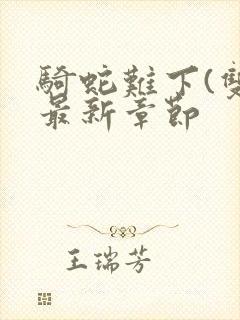 騎蛇難下(雙
最新章節
王瑞芳